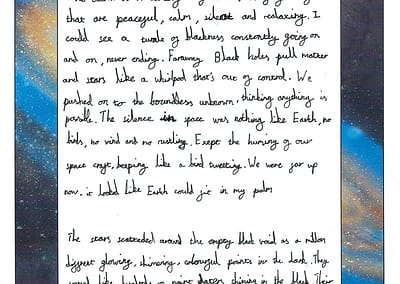 that are peaceful, calm, silent and realaxing. I
could see a tunnle of blackness constently going on
and on, never ending. Faraway Black holes pull matter
and stars like a whirlpool that's out of control. We
pushed on to the boundless unkown, thinking anything is
possible. The silence in space was nothing like Earth, no
birds, no wind and no rustling. Exept the huming of our
space craft, beeping like a bird tweeting. We were far up
now, it looked like Earth could fit in my palm
The stars scatteded around the empty black void as a million
diffrent glowing, shimering, colourful points in the dark. They